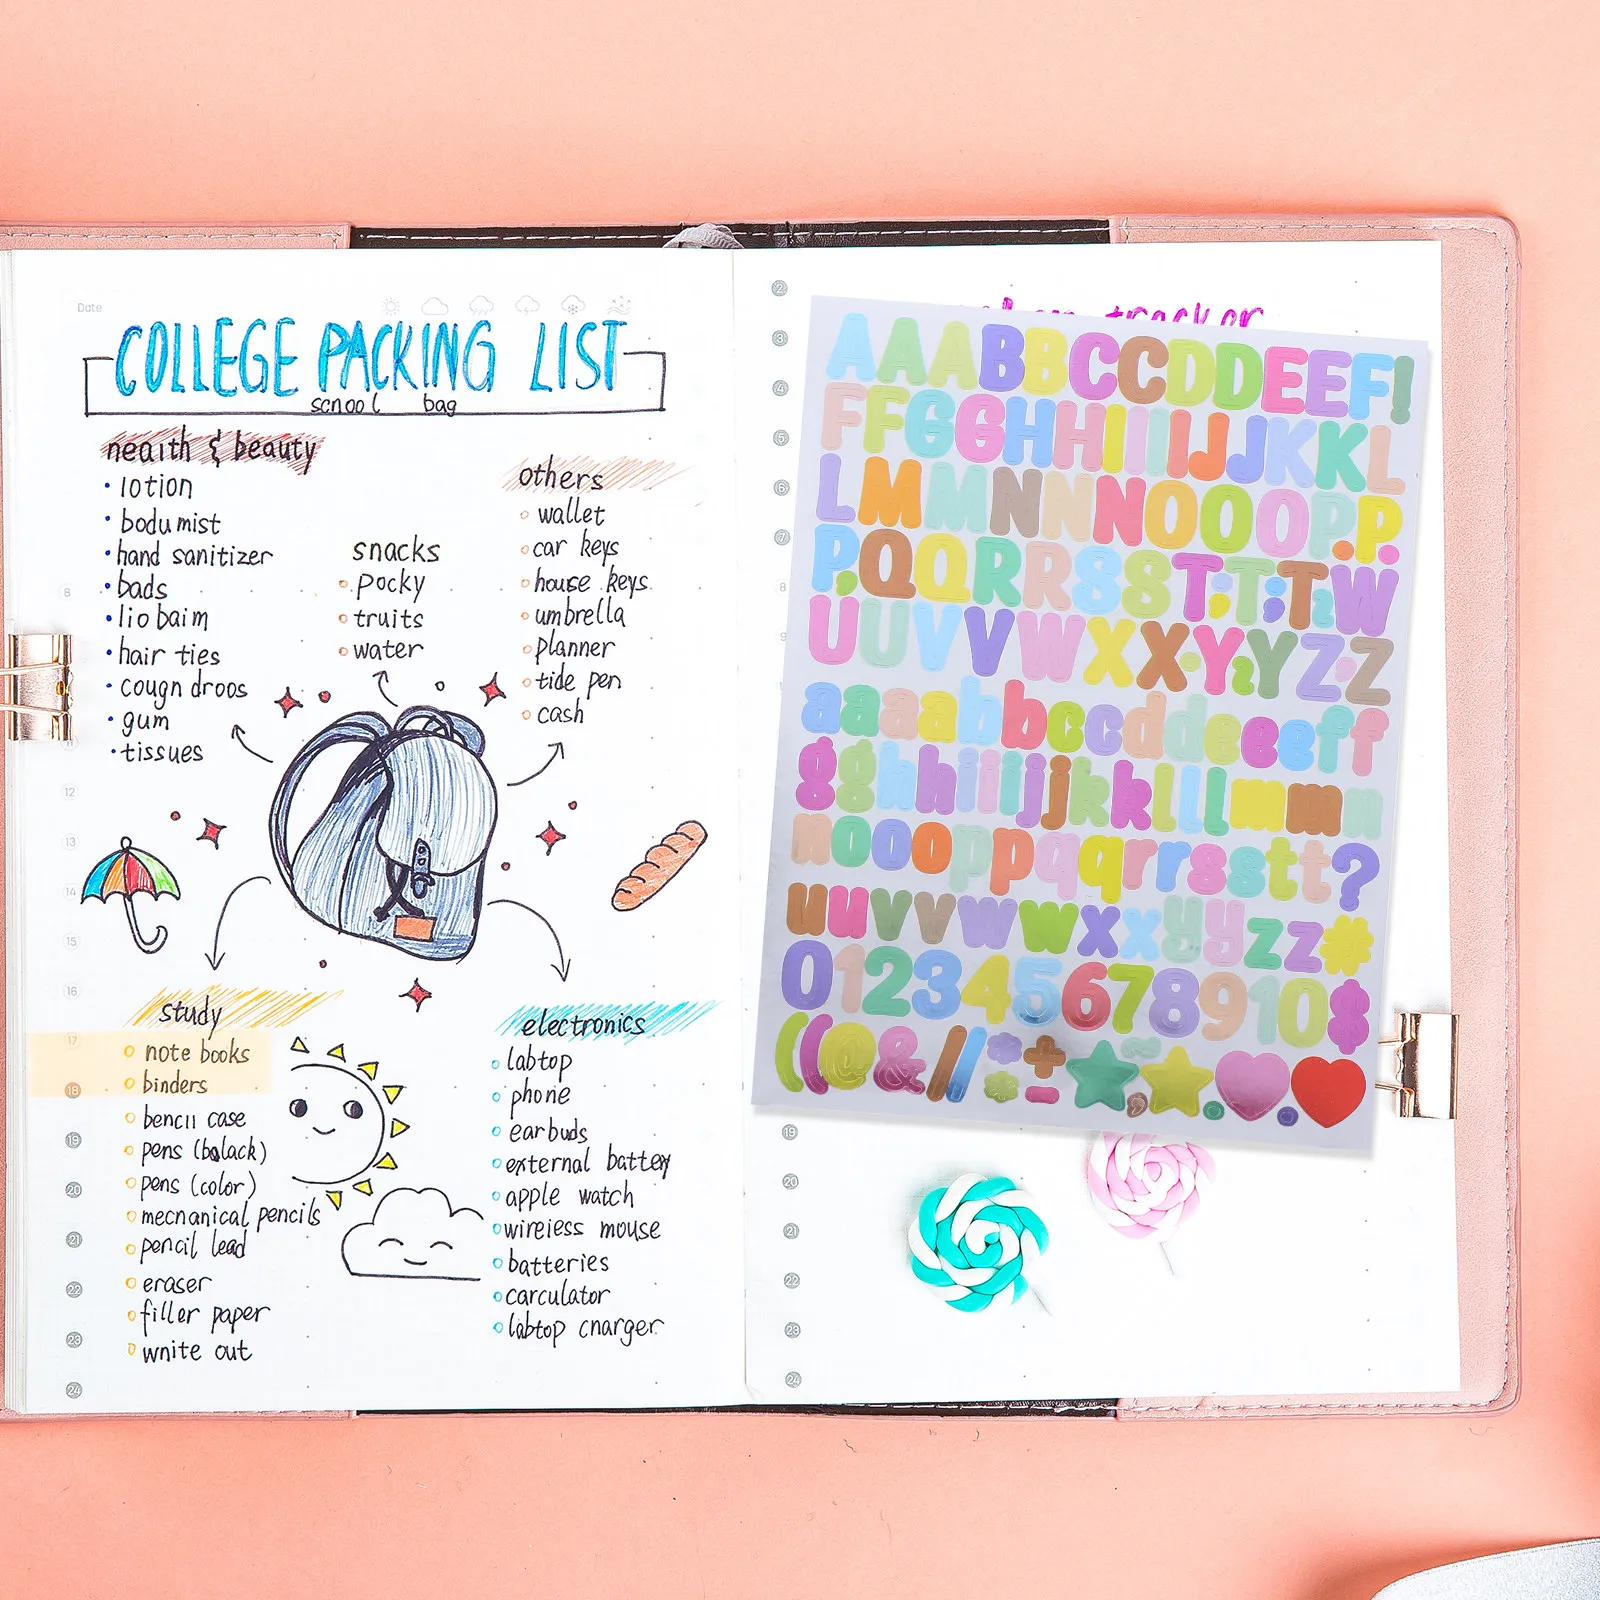 Date
COLLEGE PACKING LIST
scnool bag
neaith & beauty
lotion
bodu mist
hand sanitizer
bads
lio baim
hair ties
cougn droos
gum
tissues
snacks
pocky
truits
water
others
wallet
car keys
house keys
umbrella
planner
tide pen
cash
study
note books
binders
bencii case
pens (balack)
pens (color)
mecnanical pencils
pencil lead
eraser
filler paper
wnite out
electronics
labtop
phone
earbuds
external battey
apple watch
wireiess mouse
batteries
carculator
labtop cnarger
8
12
13
14
15
16
17
18
19
20
21
22
23
24
tracker
2
3
4
5
6
7
8
9
AAABBCCDDEEF!
FFGGHHIIIJJKKL
LMMNNNOOOPP.
P,QQRRSST;T;TW
UUVVWXXYYZZ
aaaabbccddeeff
gghhiijjkklllmmn
nooopppqqrrsstt?
uuvvwwxxyyzz*
0123456789108
((@&//+-
19
20
21
22
23
24